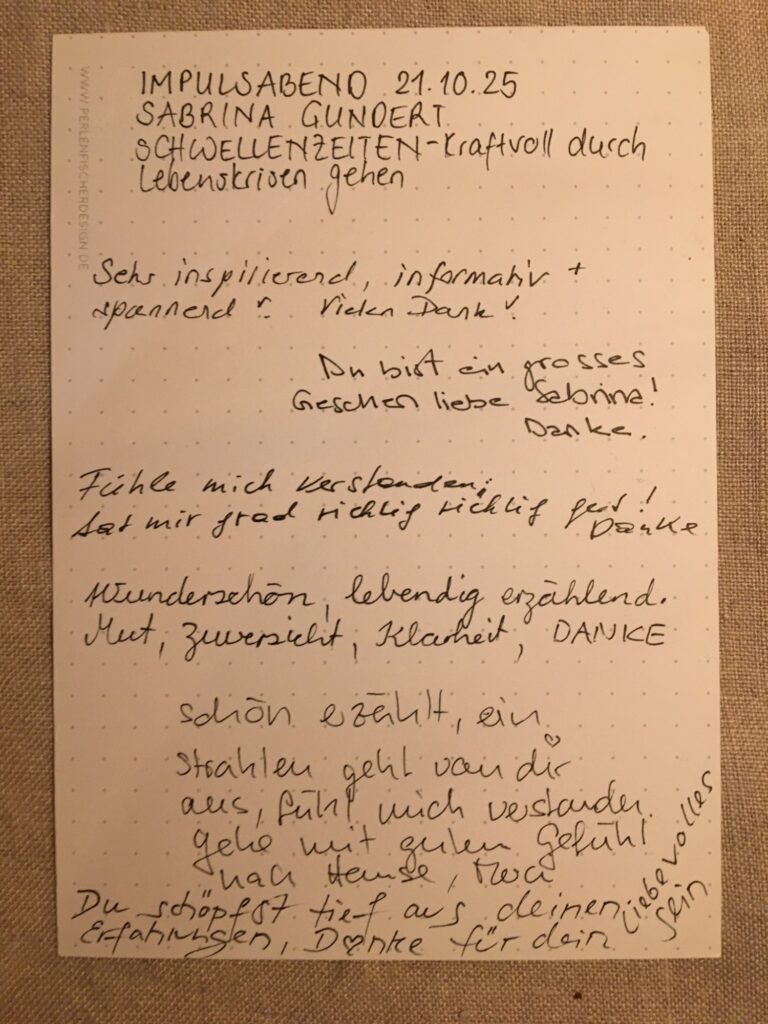 WWW.PERLENFISCHERDESIGN.DE
IMPULSABEND 21.10.25
SABRINA GUNDERT
SCHWELLENZEITEN-Kraftvoll durch
Lebenskrisen gehen
Sehr inspirierend, informativ +
spannend! Vielen Dank!
Du bist ein grosses
Geschen liebe Sabrina!
Danke.
Fühle mich verstanden,
tat mir grad richtig richtig gut!
Danke
Wunderschön, lebendig erzählend.
Mut, Zuversicht, Klarheit, DANKE
schön erzählt, ein
Strahlen geht von dir
aus, fühl mich verstanden.
gehe mit guten Gefühl
nach Hause, Merci
Du schöpfst tief aus deinen
Erfahrungen, Danke für dein
liebevolles
Sein